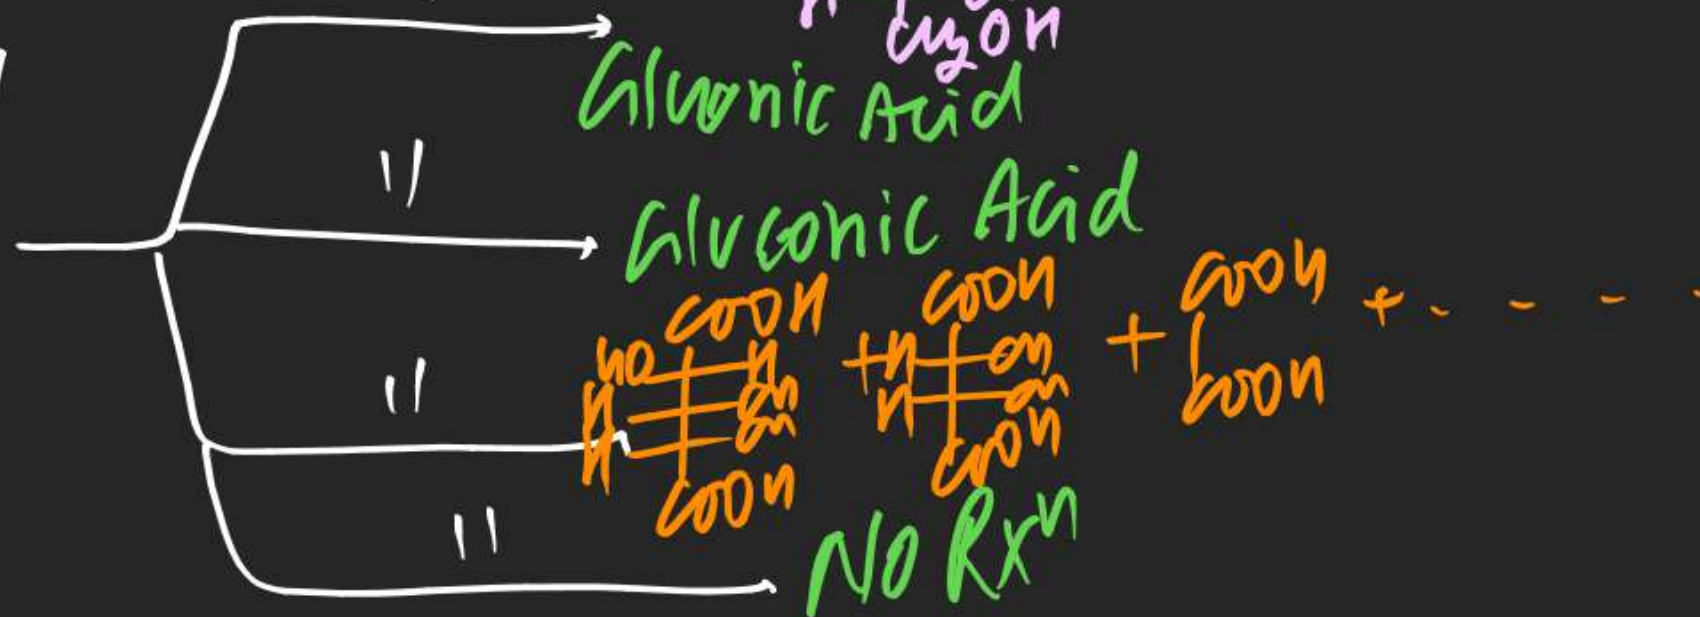 CH2OH
Gluconic Acid
"
Gluconic Acid
COOH COOH COOH + - - -
HO H + H OH +
H OH H OH COOH
H OH COOH
COOH
"
"
No Rxn